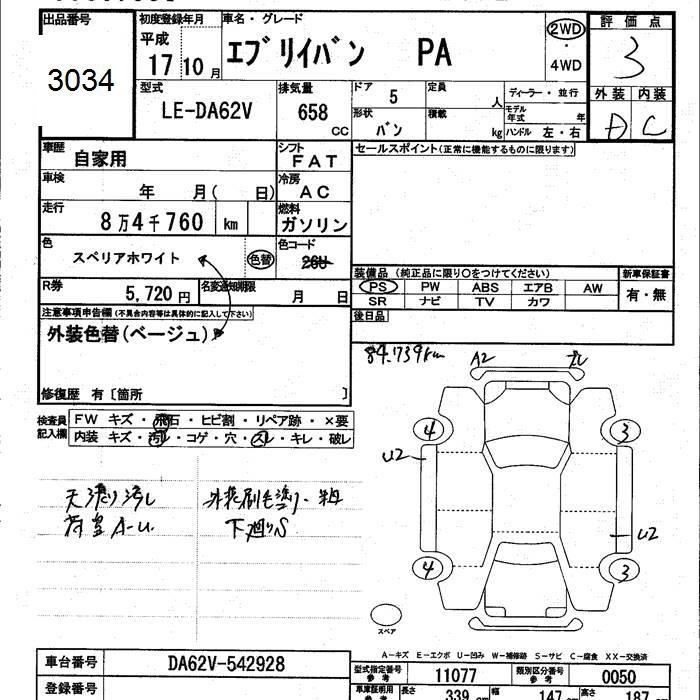 出品番号 初度登録年月 車名・グレード 評価点
3034 平成 17 10月 エブリイバン PA 2WD・4WD 3
型式 排気量 ドア 定員 ディーラー・並行 外装 内装
LE-DA62V 658 CC 5 人 モデル年式 年 D C
形状 バン 積載 kg ハンドル 左・右
車歴 自家用 シフト FAT セールスポイント(正常に機能するものに限ります)
車検 年 月( 日) 冷房 AC
走行 8万4千760 km 燃料 ガソリン
色 スペリアホワイト 色替 色コード 26U
装備品 (純正品に限り○をつけてください) 新車保証書
R券 5,720円 名変通知期限 月 日 PS PW ABS エアB AW 有・無
SR ナビ TV カワ
注意事項申告欄(不具合内容等は具体的に記入して下さい) 後日品
外装色替(ベージュ)
84.739km A2
修復歴 有〔箇所 〕
検査員記入欄 FW キズ・飛石・ヒビ割・リペア跡・×要
内装 キズ・汚レ・コゲ・穴・スレ・キレ・破レ
4 3
U2
天張り汚レ 外装刷毛塗り
荷室A-U 下廻りS
U2
4 3
スペア
A-キズ E-エクボ U-凹み W-補修跡 S-サビ C-腐食 XX-交換済
車台番号 DA62V-542928 型式指定番号 参考 11077 類別区分番号 参考 0050
登録番号 車庫証明用 参考 長さ 339 cm 幅 147 cm 高さ 187 cm